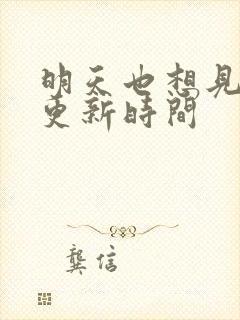 明天也想見
更新時間
龔信